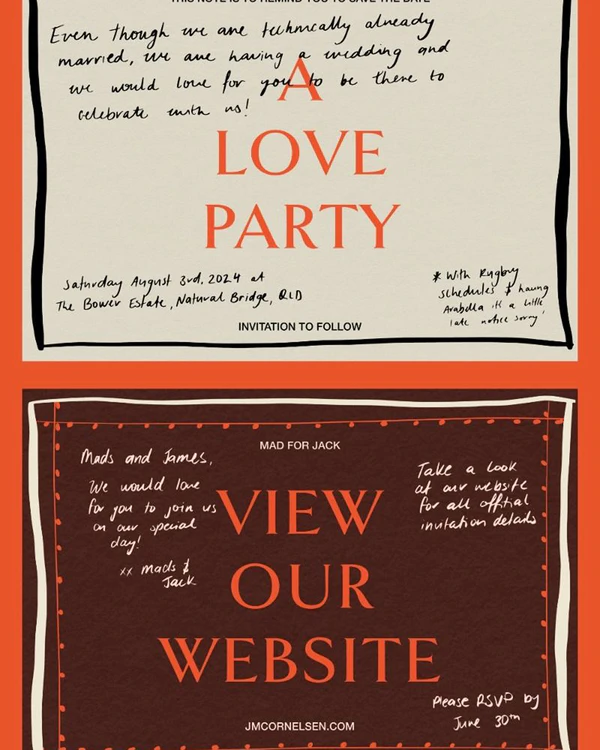 THIS NOTE IS TO REMIND YOU TO SAVE THE DATE
Even though we are technically already
married, we are having a wedding and
we would love for you to be there to
celebrate with us!
A
LOVE
PARTY
Saturday August 3rd, 2024 at
The Bower Estate, Natural Bridge, QLD
* With Rugby
schedules & having
Arabella it's a little
late notice sorry!
INVITATION TO FOLLOW
MAD FOR JACK
Mads and James,
We would love
for you to join us
on our special
day!
xx Mads &
Jack
Take a look
at our website
for all official
invitation details
VIEW
OUR
WEBSITE
Please RSVP by
June 30th
JMCORNELSEN.COM